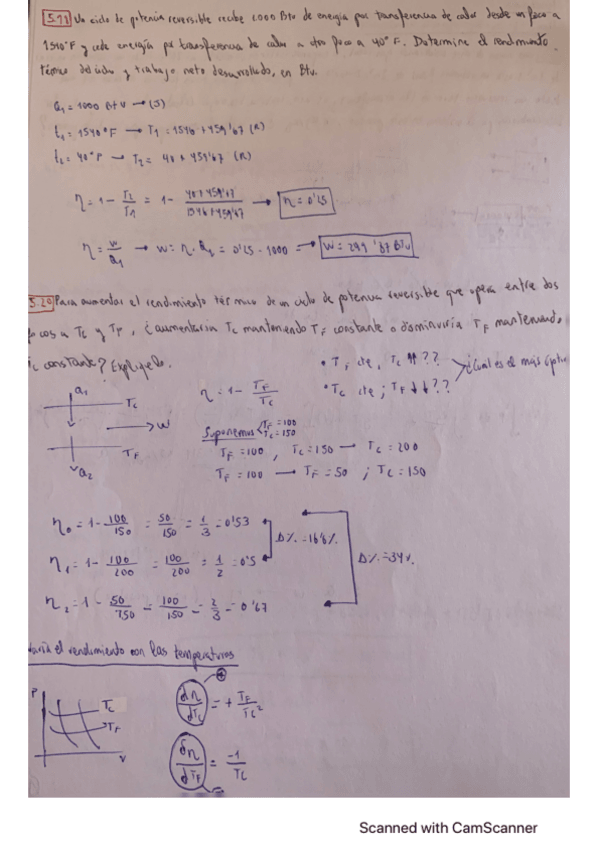 5.19 Un ciclo de potencia reversible recibe 1000 Btu de energía por transferencia de calor desde un foco a
1540°F y cede energía por transferencia de calor a otro foco a 40°F. Determine el rendimiento
térmico del ciclo y trabajo neto desarrollado, en Btu.
Q1 = 1000 BtU → (J)
t1 = 1540°F → T1 = 1540 + 459'67 (R)
t2 = 40°F → T2 = 40 + 459'67 (R)
η = 1 - T2/T1 = 1 - 40+459'67/1540+459'67 → η = 0'25
η = W/Q1 → W = η · Q2 = 0'25 · 1000 = → W = 249'87 BTU
5.20 Para aumentar el rendimiento térmico de un ciclo de potencia reversible que opera entre dos
focos a TC y TF, ¿aumentaría TC manteniendo TF constante o disminuiría TF manteniendo
TC constante? Explíquelo.
• TF cte, TC ↑↑ ??
• TC cte ; TF ↓↓ ??
¿Cuál es el más
η = 1 - TF/TC
Q1
TC
W
TF
Q2
Suponemos TF = 100 TC = 150
TF = 100 , TC = 150 → TC = 200
TF = 100 → TF = 50 ; TC = 150
η0 = 1 - 100/150 = 50/150 = 1/3 = 0'33
η1 = 1 - 100/200 = 100/200 = 1/2 = 0'5
Δ% = 16'6%
Δ% = 34%
η2 = 1 - 50/150 = 100/150 = 2/3 = 0'67
varía el rendimiento con las temperaturas
P
TC
TF
V
dη/dTC = + TF/TC²
+
dη/dTF = -1/TC
-
Scanned with CamScanner